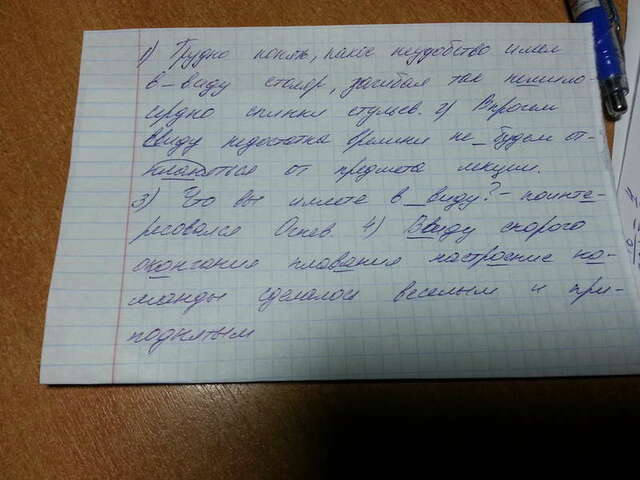 1) Трудно понять, какое неудобство имел
в виду столяр, загибая так немило-
сердно спинки стульев. 2) Впрочем
ввиду недостатка времени не будем от-
влекаться от предмета лекции.
3) Что вы имеете в виду? - поинте-
ресовался Осnев. 4) Ввиду скорого
окончания плавания настроение ко-
манды сделалось веселым и при-
поднятым